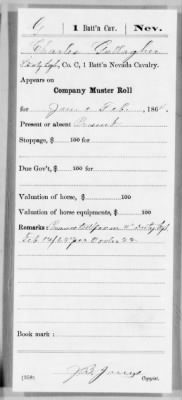 G | 1 Batt'n Cav. | Nev.
Charles Gallagher
Co. C, 1 Batt'n Nevada Cavalry.
Appears on
Company Muster Roll
for Jan & Feb, 186
Present or absent Present
Stoppage, $ 100 for
Due Gov't, $ 100 for
Valuation of horse, $ 100
Valuation of horse equipments, $ 100
Remarks:
Feb
Book mark:
(358)
Copyist.